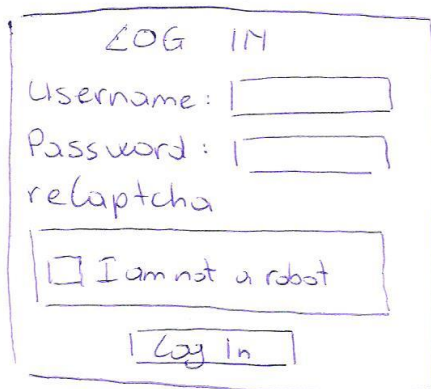 LOG IN
Username:
Password:
reCaptcha
I am not a robot
Log In